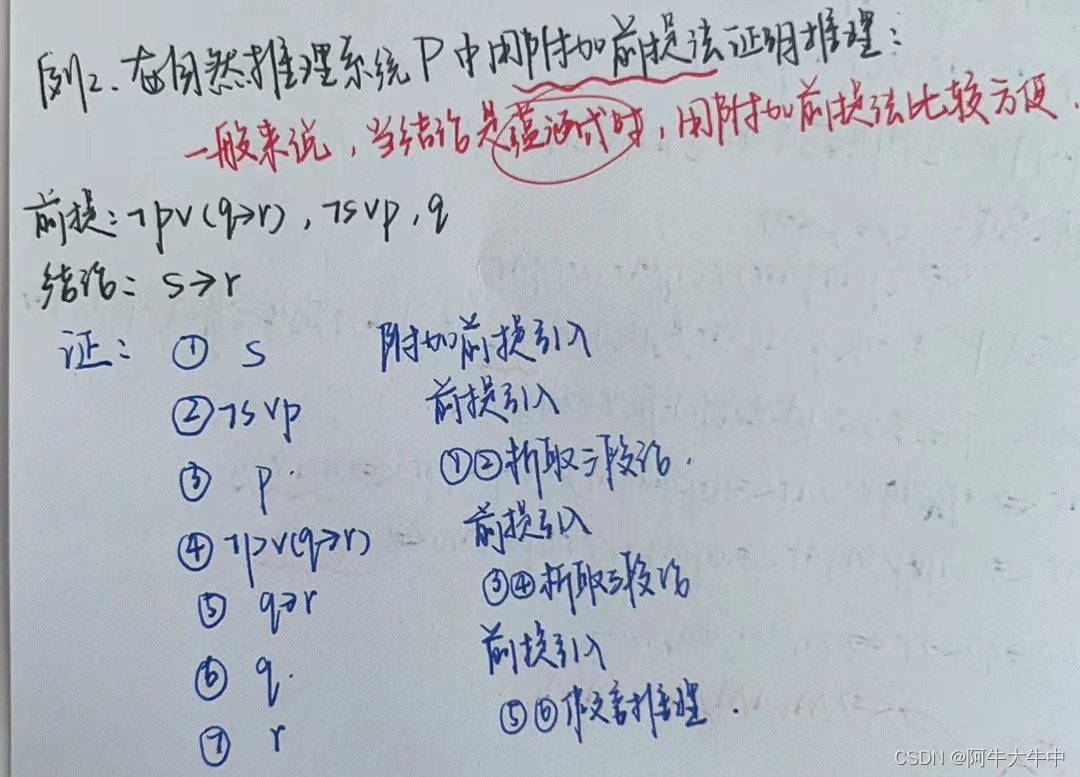 例2、在自然推理系统P中用附加前提法证明推理：
一般来说，当结论是蕴涵式时，用附加前提法比较方便.
前提：¬p∨(q→r)，¬s∨p，q
结论：s→r
证：① s 附加前提引入
② ¬s∨p 前提引入
③ p. ①②析取三段论.
④ ¬p∨(q→r) 前提引入
⑤ q→r ③④析取三段论
⑥ q. 前提引入
⑦ r ⑤⑥假言推理.
CSDN @阿牛大牛中